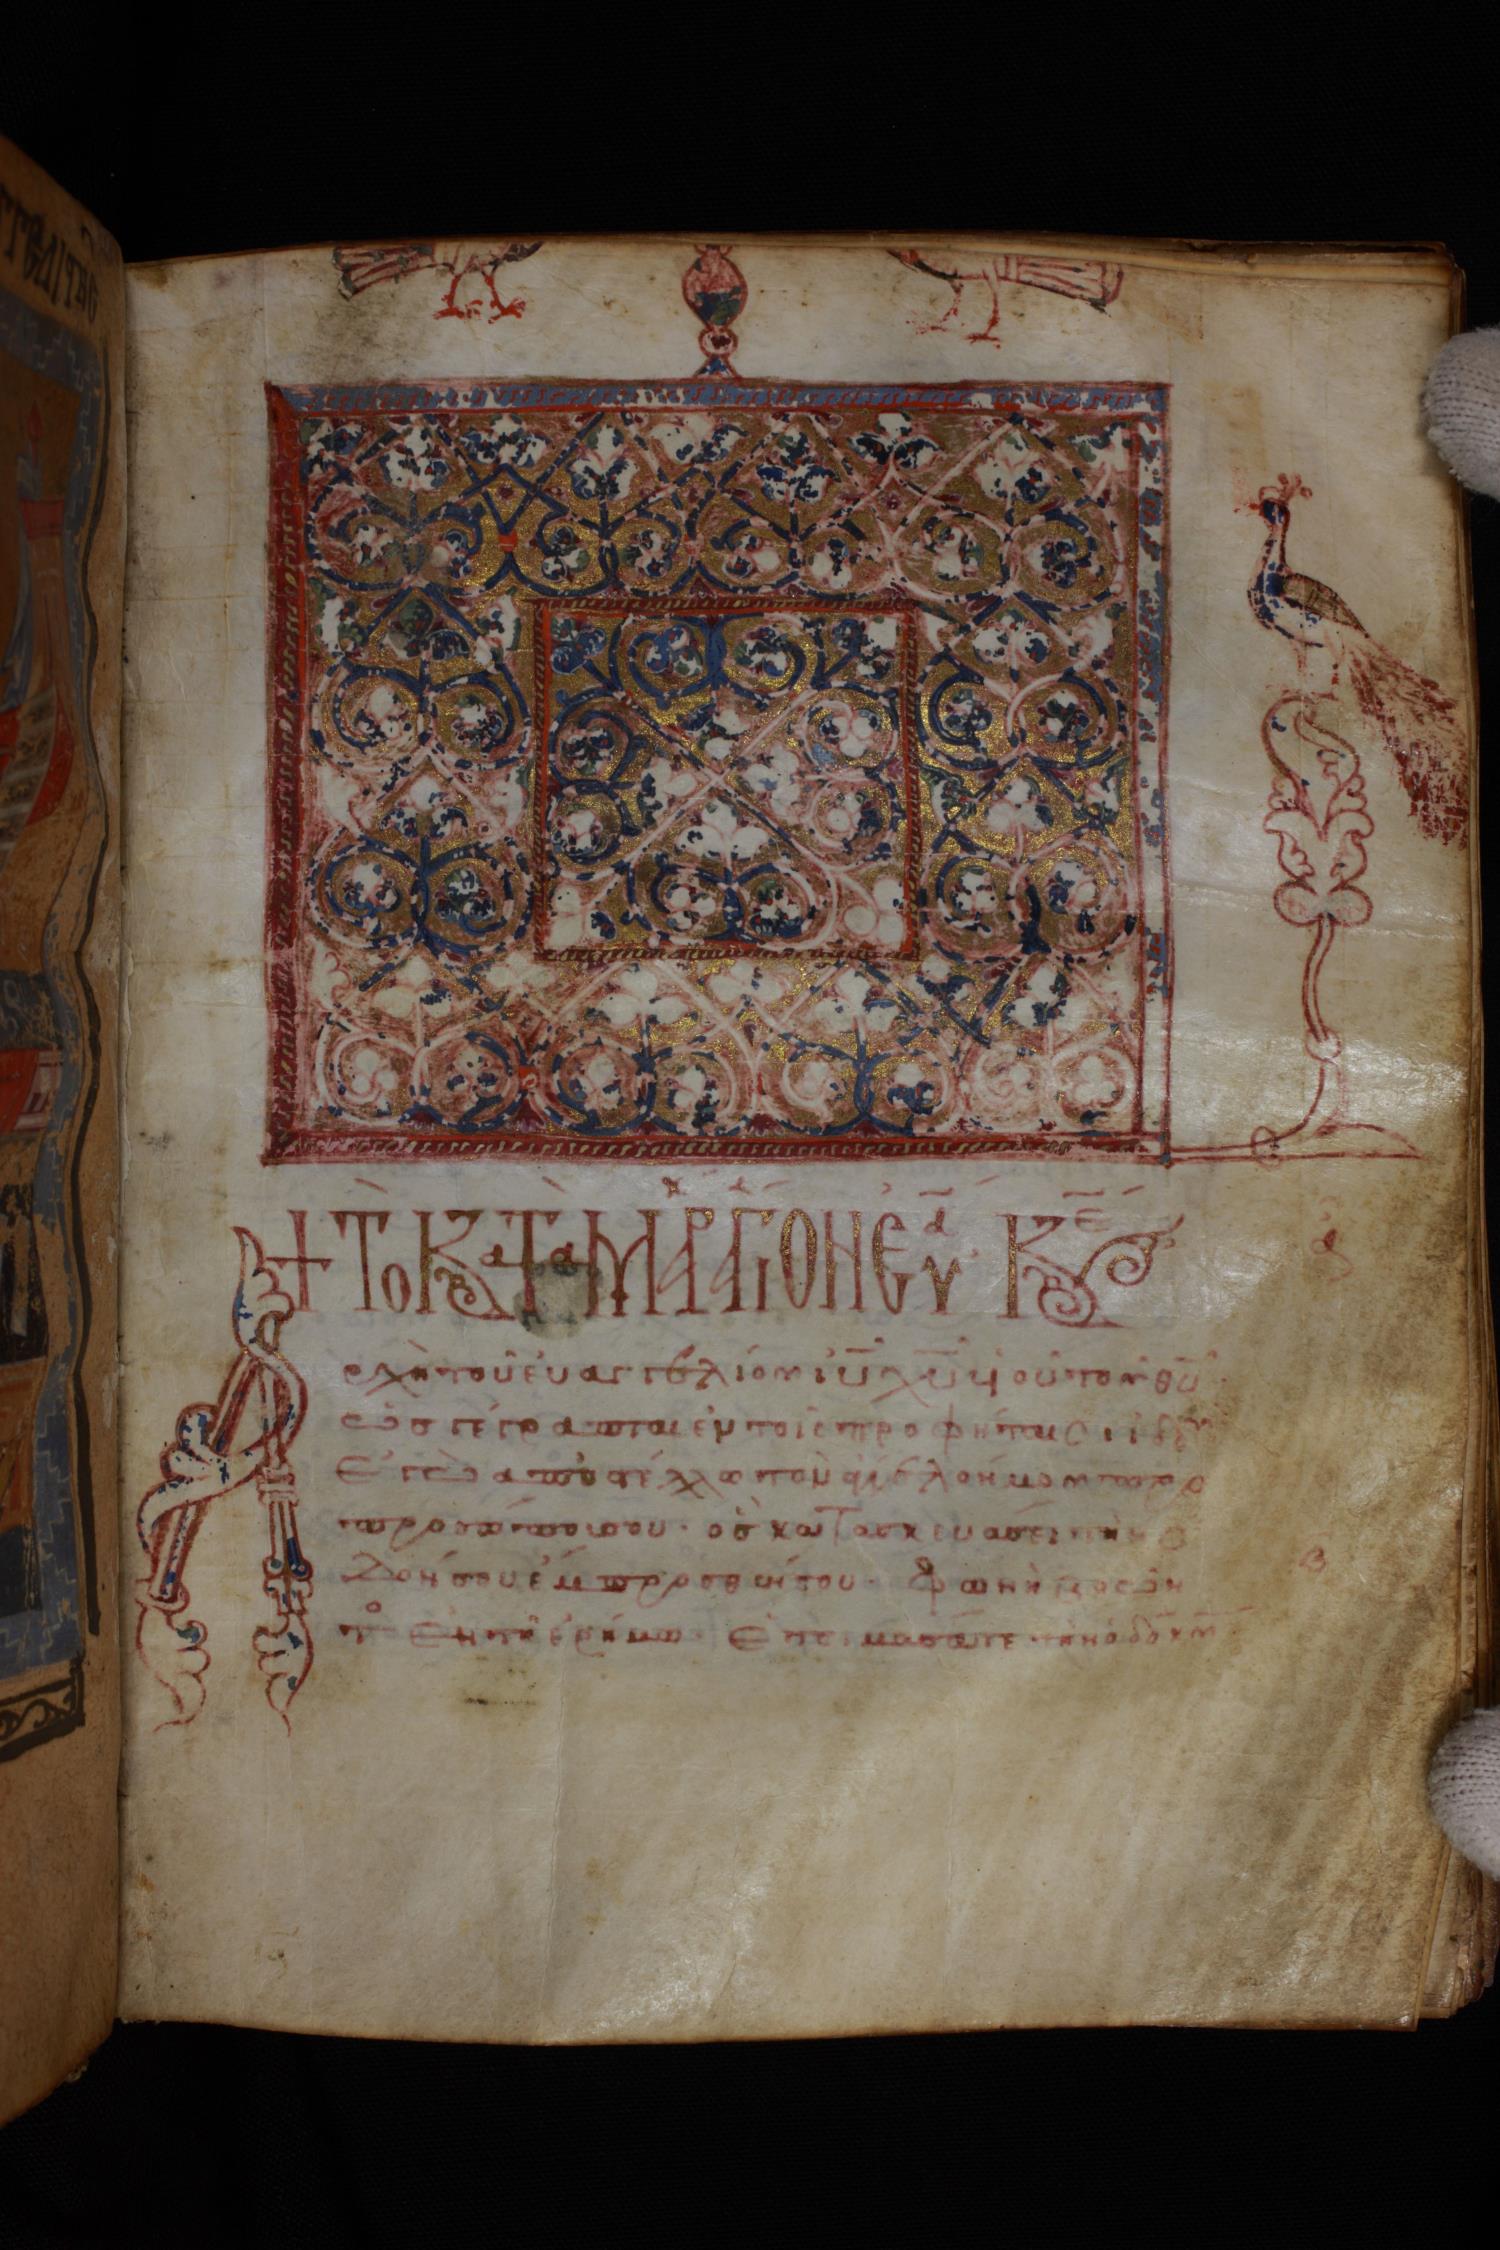 + Το Κατα Μάρκον Ευα Κε
Αρχὴ τοῦ ἐυαγγελίου ιυ χυ υἱοῦ τοῦ θυ·
ὡς γέγραπται ἐν τοῖς προφήταις ἰδοὺ
Ἐγὼ ἀποστέλλω τὸν ἄγγελόν μου προ
προσώπου σου· ὃς κατασκευάσει τὴν ὁ
δόν σου ἔμπροσθέν σου· φωνὴ βοῶν
το Ἐν τῆ ἐρήμω Ἑτοιμάσατε τὴν ὁδὸν κυ